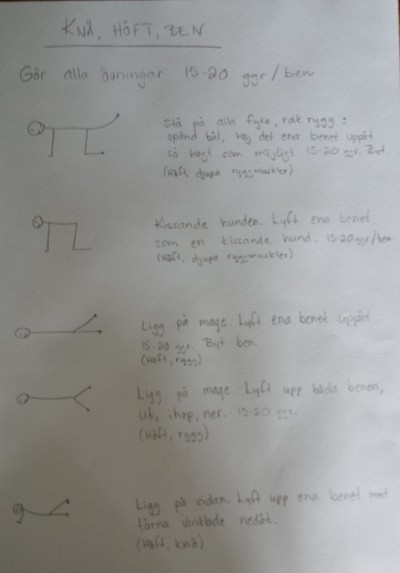 KNÄ, HÖFT, BEN
Gör alla övningar 15-20 ggr/ben
Stå på alla fyra, rak rygg &
spänd bål, höj det ena benet uppåt
så högt som möjligt 15-20 ggr. Byt.
(Höft, djupa ryggmuskler)
Kissande hunden. Lyft ena benet
som en kissande hund. 15-20 ggr/ben
(Höft, djupa ryggmuskler)
Ligg på mage. Lyft ena benet uppåt
15-20 ggr. Byt ben.
(Höft, rygg)
Ligg på mage. Lyft upp båda benen,
ut, ihop, ner. 15-20 ggr.
(Höft, rygg)
Ligg på sidan. Lyft upp ena benet med
tårna vinklade nedåt.
(Höft, knä)